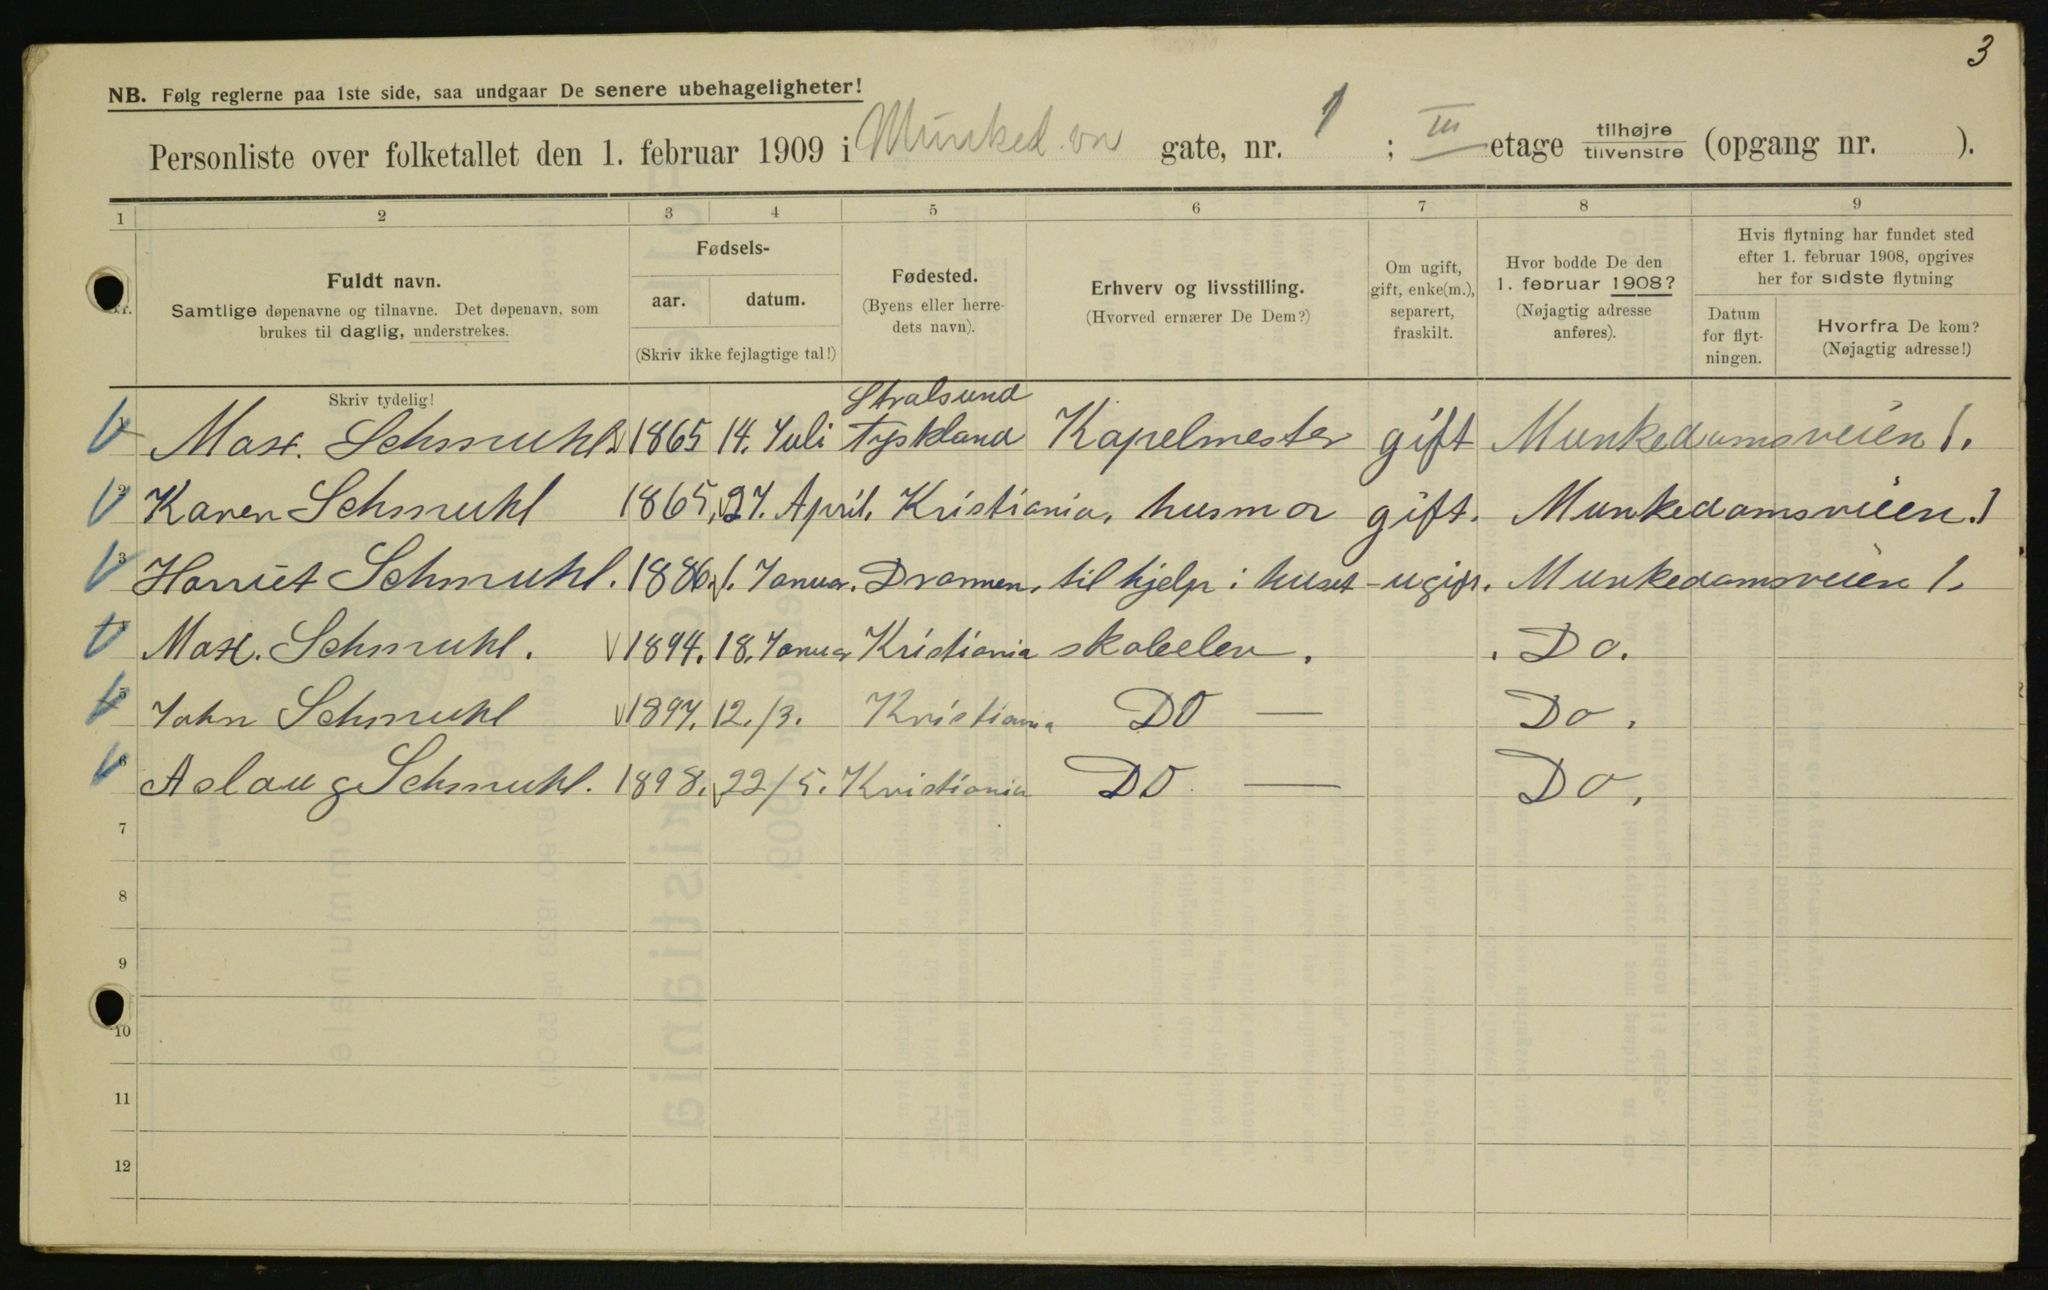 3
NB. Følg reglerne paa 1ste side, saa undgaar De senere ubehageligheter!
Personliste over folketallet den 1. februar 1909 i Munked.vn gate, nr. 1 ; III etage tilhøjre tilvenstre (opgang nr. ).
1 2 3 4 5 6 7 8 9
Fuldt navn.
Samtlige døpenavne og tilnavne. Det døpenavn, som
brukes til daglig, understrekes.
Skriv tydelig!
Fødsels-
aar. datum.
(Skriv ikke fejlagtige tal!)
Fødested.
(Byens eller herre-
dets navn).
Erhverv og livsstilling.
(Hvorved ernærer De Dem?)
Om ugift,
gift, enke(m.),
separert,
fraskilt.
Hvor bodde De den
1. februar 1908?
(Nøjagtig adresse
anføres).
Hvis flytning har fundet sted
efter 1. februar 1908, opgives
her for sidste flytning
Datum
for flyt-
ningen.
Hvorfra De kom?
(Nøjagtig adresse!)
Stralsund
Max. Schmuhl 1865 14. Juli Tyskland Kapelmester gift Munkedamsveien 1.
2 Karen Schmuhl 1865. 27. April. Kristiania. husmor gift. Munkedamsveien. 1
3 Harriet Schmuhl. 1886. 1. Januar. Drammen. til hjelp i huset - ugift. Munkedamsveien 1.
Max. Schmuhl. 1894. 18. Januar Kristiania skoleelev. Do.
5 John Schmuhl 1897. 12./3. Kristiania DO — Do.
6 Aslaug Schmuhl. 1898. 22/5. Kristiania DO — Do.
7
8
9
10
11
12